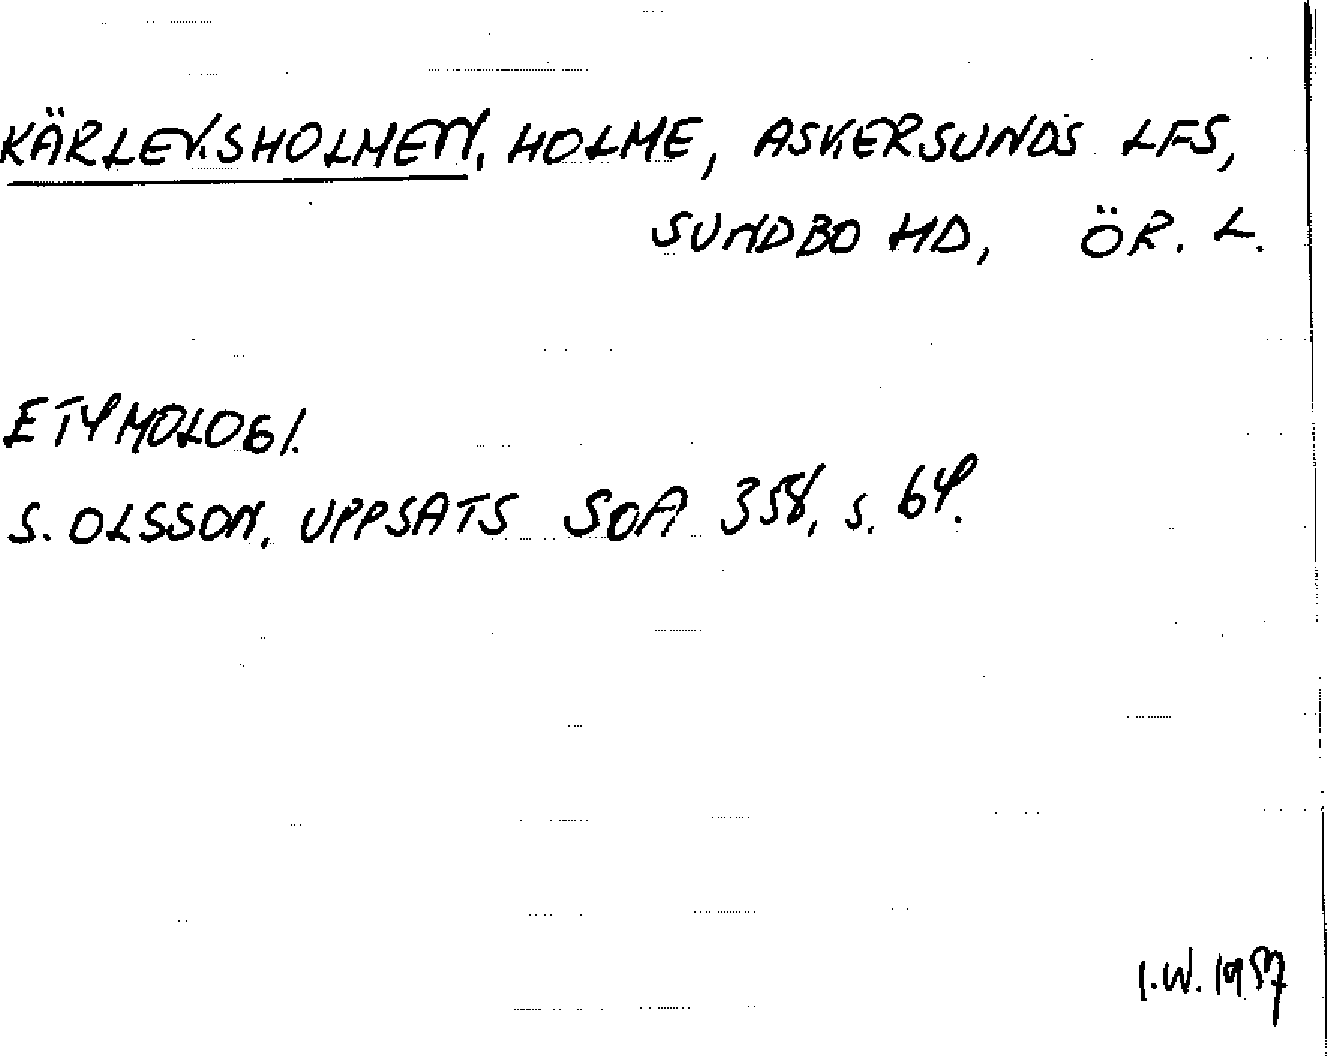 KÄRLEKSHOLMEN, HOLME, ASKERSUNDS LFS,
SUNDBO HD, ÖR. L.
ETYMOLOGI.
S. OLSSON, UPPSATS SOA 358, S. 64.
I.W. 1957